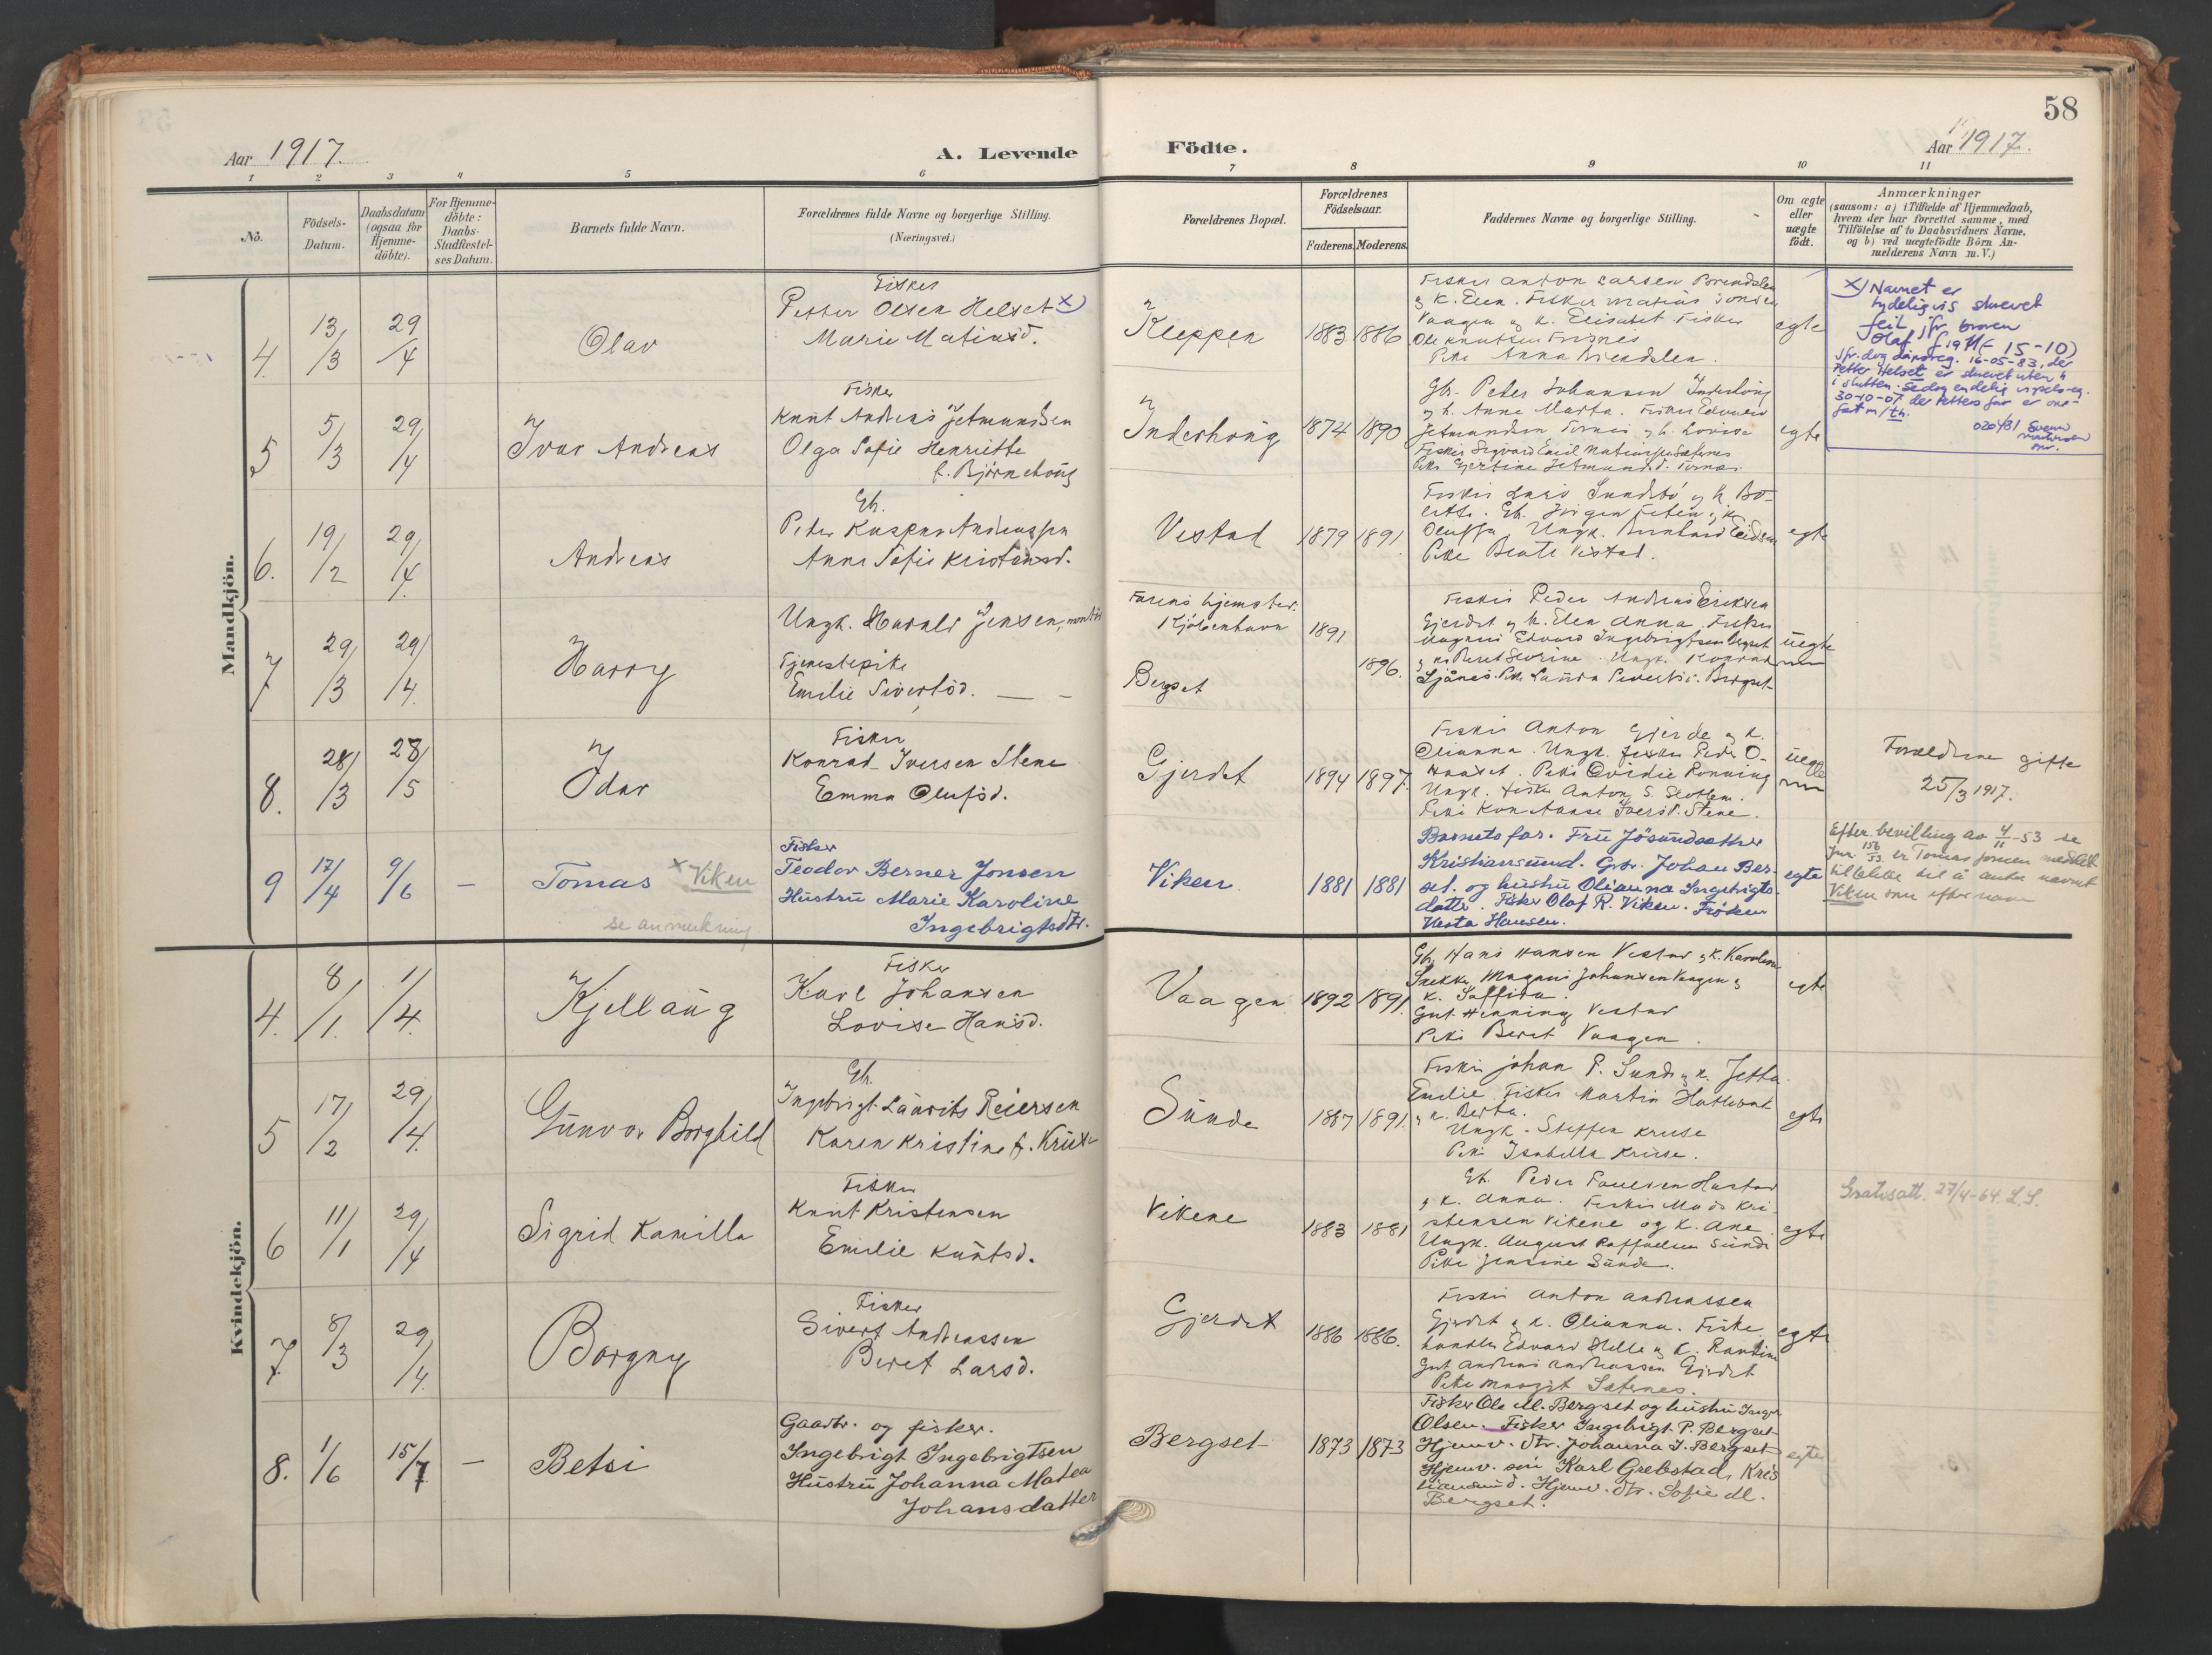 58
Aar 1917.
A. Levende
Födte.
Aar 1917.
1 2 3 4 5 6 7 8 9 10 11
No.
Födsels-
Datum.
Daabsdatum
(ogsaa for
Hjemme-
döbte).
For Hjemme-
döbte:
Daabs-
Stadfæstel-
ses Datum.
Barnets fulde Navn.
Forældrenes fulde Navne og borgerlige Stilling.
(Næringsvei.)
Forældrenes Bopæl.
Forældrenes
Födselsaar.
Faderens. Moderens.
Faddernes Navne og borgerlige Stilling.
Om ægte
eller
uægte
födt.
Anmærkninger
(saasom: a) i Tilfælde af Hjemmedaab,
hvem der har forrettet samme, med
Tilföielse af to Daabsvidners Navne.
og b) ved uægtefödte Börn An-
melderens Navn m. V.)
Mandkjön.
4. 13/3 29/4
Olav
Fisker
Petter Olsen Helset x)
Marie Matiasd.
Kleppen
1883 1886
Fisker Anton Larsen Brendalen
& k. Elen. Fisker Matias Jonsen
Vaagen og k. Elisabet Fisker
Ole Knutsen
Pike Anna Brendalen.
egte
x) Navnet er
tydeligvis skrevet
feil, jfr. broren
Olaf f. 1911 (- 15-10)
Petter Helset er skrevet uten h
i slutten.
5 5/3 29/4
Ivar Andreas
Fisker
Knut Andreas Jetmundsen
Olga Sofie Henriette
f. Björnehaug
Inderhaug
1874 1890
Gbr. Peder Johansen Inderhaug
og k. Anne Marta. Fisker Edvard
Jetmundsen Tornes og k. Lovise
Fisker Sigvard Emil
Pike Gjertine Jetmundsd. Tornes.
egte
6. 19/2 29/4
Andreas
Gb.
Peter Kasper Andreassen
Anne Sofie Kristensd.
Vestad
1879 1891
Fisker Lars Sundsbö og k. Bo-
lette. Gb. Jörgen
Oluffa Ungk. Bernhard Eidsem
Pike Beate Vestad.
egte
7 29/3 29/4
Harry
Ungk. Harald Jensen, montör
Tjenestepike
Emilie Sivertsd.
Farens hjemsted:
Kjöbenhavn
Bergset
1891
1896.
Fisker Peder Andreas Eriksen
Gjerdet og k. Elen Anna. Fisker
Edvard Ingebrigtsen Bergset
og k. Beret Severine. Ungk. Konrad
Sjånes. Pike Laura Sivertsd. Bergset
uegte
8. 28/3 28/5
Idar
Fisker
Konrad Iversen Stene
Emma Olufsd.
Gjerdet
1894 1897.
Fisker Anton Gjerde og k.
Olianna. Ungk. fisker Peder O.
Haaset. Pike Ovidie Rönning
Ungk. fisker Anton S. Slotten.
Pike Konstanse Iversd. Stene.
uegte
Forældrene gifte
25/3 1917.
9 17/4 9/6 —
Tomas x Viken
se anmerkning
Fisker
Teodor Berner Jonsen
Hustru Marie Karoline
Ingebrigtsdtr.
Viken
1881 1881
Barnets far. Fru Jösundsæther
Kristiansund. Gbr. Johan Berg-
set. og hustru Olianna Ingebrigts-
datter. Fisker Olaf R. Viken. Fröken
Vesta Hansen.
egte
Efter bevilling av 4/11-53 se
jnr. 156/53 er Tomas Jonsen meddelt
tillatelse til å anta navnet
Viken som efternavn
Kvindekjön.
4. 8/1. 1/4.
Kjellaug
Fisker
Karl Johansen
Lovise Hansd.
Vaagen
1892 1891.
Gb. Hans Hansen Vestad og k. Karoline
Snekker Magnus Johansen Vaagen og
k. Saffira.
Gut Henning Vestad
Pike Beret Vaagen.
egte
5 17/2 29/4.
Gunvor Borghild
Gb.
Ingebrigt Laurits Reiersen
Karen Kristine f. Kruse
Sunde
1887 1891.
Fisker Johan P. Sunde og k. Jetta
Emilie. Fisker Martin
og k. Berta.
Ungk. Steffen Kruse
Pike Isabella Kruse.
egte
6 11/1 29/4
Sigrid Kamilla
Fisker
Knut Kristensen
Emilie Knutsd.
Vikene
1883 1881
Gb. Peder Paulsen Hustad
og k. Anna. Fisker Mads Kri-
stensen Vikene og k. Ane
Ungk. August Raffaelsen Sunde
Pike Jensine Sunde.
egte
Gratisatt. 27/4-64. L.S.
7 8/3 29/4.
Borgny
Fisker
Sivert Andreassen
Beret Larsd.
Gjerdet
1886 1886.
Fisker Anton Andreassen
Gjerdet og k. Olianna. Fiske-
handler Edvard Stelle og k. Rantine
Gut Andreas Andreassen Gjerdet
Pike Margit Sæternes.
egte
8. 1/6 15/7 —
Betsi
Gaardbr. og fisker.
Ingebrigt Ingebrigtsen
Hustru Johanna Matea
Johansdatter
Bergset
1873 1873
Fisker Ole M. Bergset og hustru Inger
Olsen. Fisker Ingebrigt P. Bergset
Hjemv. dtr. Johanna I. Bergset
Hjemv. sön Karl Grebstad, Kris
tiansund. Hjemv. dtr. Sofie M.
Bergset.
egte